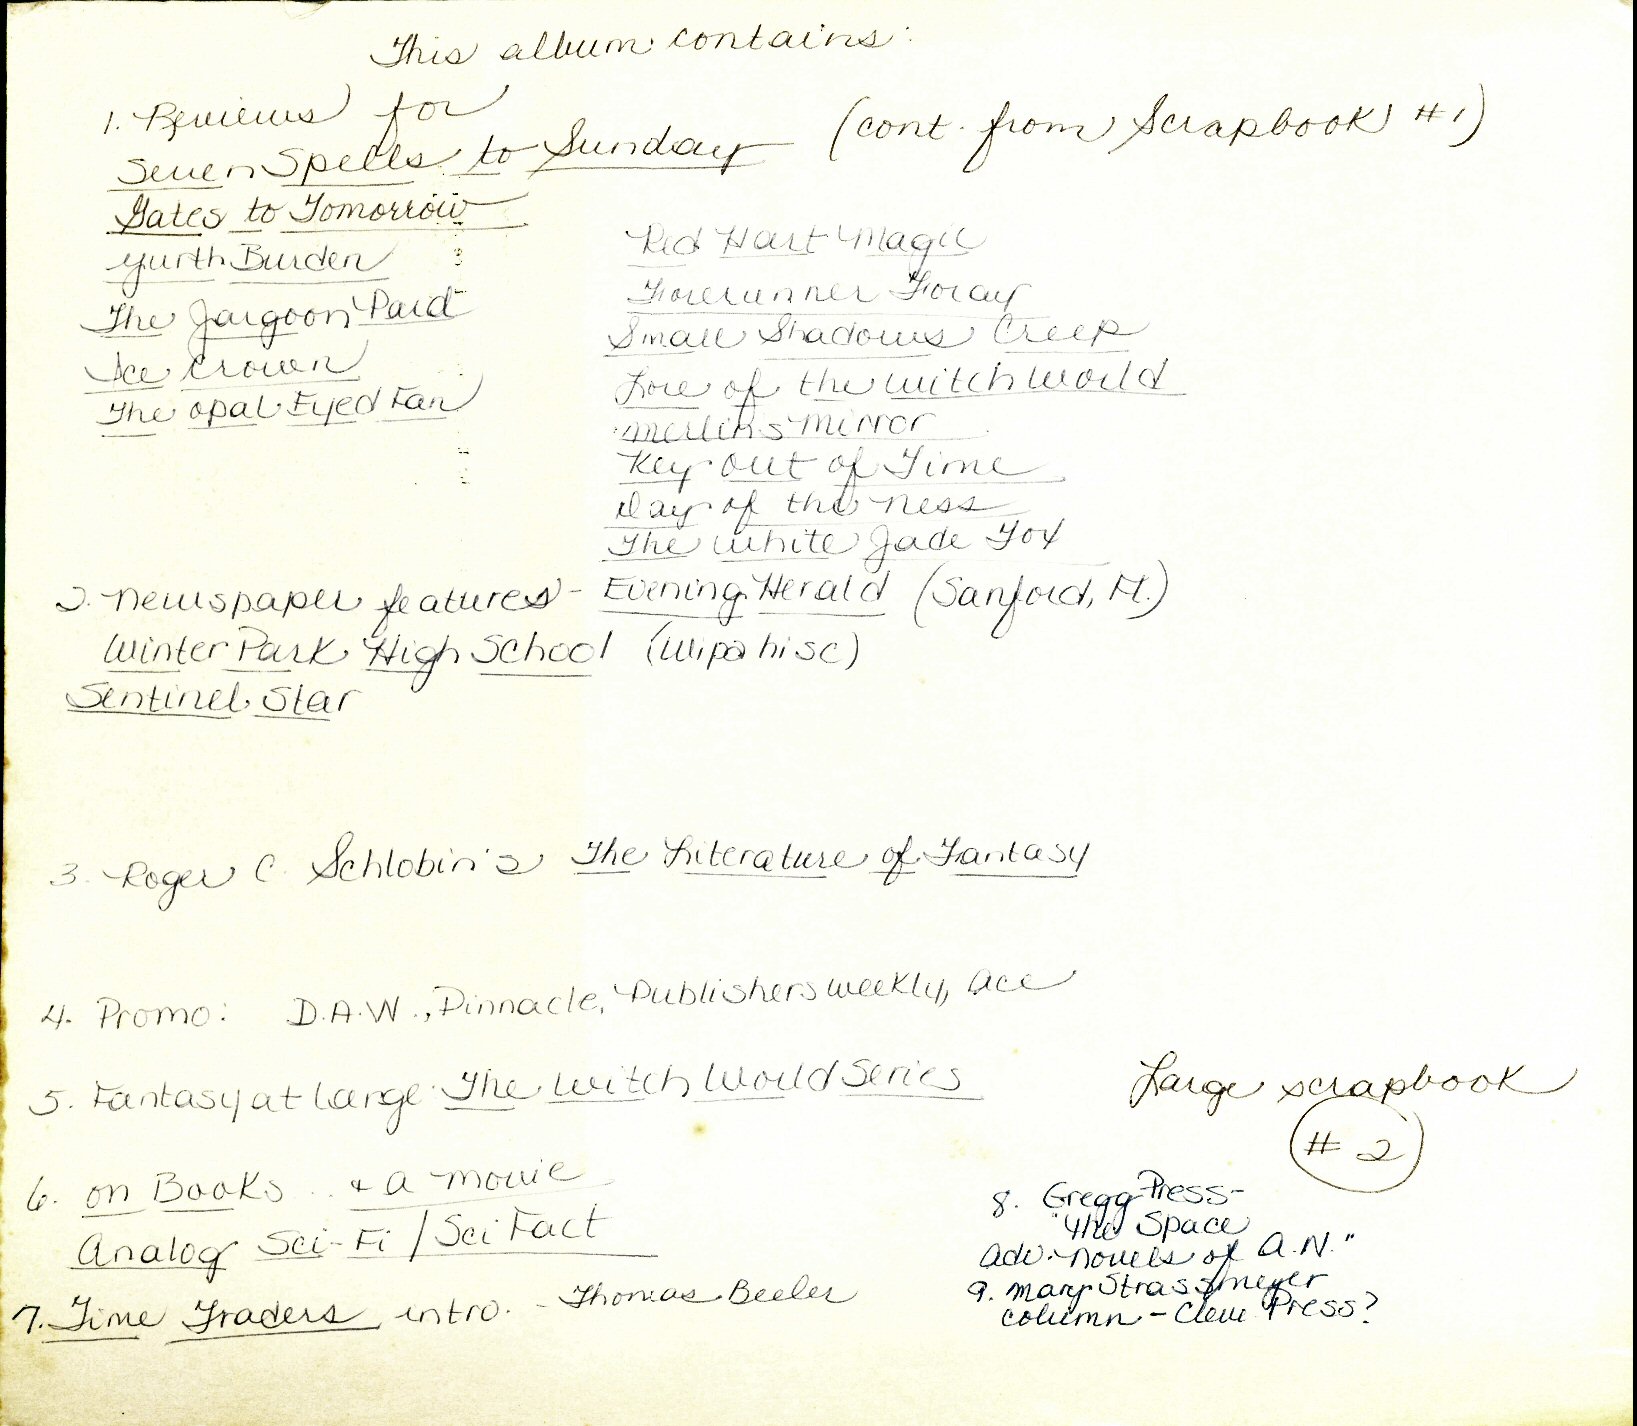 This album contains:
1. Reviews for
Seven Spells to Sunday (cont. from Scrapbook #1)
Gates to Tomorrow
Yurth Burden
The Jargoon Pard
Ice Crown
The Opal Eyed Fan
Red Hart Magic
Forerunner Foray
Small Shadows Creep
Lore of the Witch World
Merlin's Mirror
Key Out of Time
Day of the Ness
The White Jade Fox
2. Newspaper features - Evening Herald (Sanford, Fl.)
Winter Park High School (Wipahisc)
Sentinel Star
3. Roger C. Schlobin's The Literature of Fantasy
4. Promo: D.A.W., Pinnacle, Publishers Weekly, Ace
5. Fantasy at Large The Witch World Series
6. On Books... + a movie
Analog Sci-Fi / Sci Fact
7. Time Traders intro. - Thomas Beeler
Large scrapbook
# 2
8. Gregg Press -
"The Space
Adv. Novels of A.N."
9. Mary Strassmeyer
column - Cleve Press?